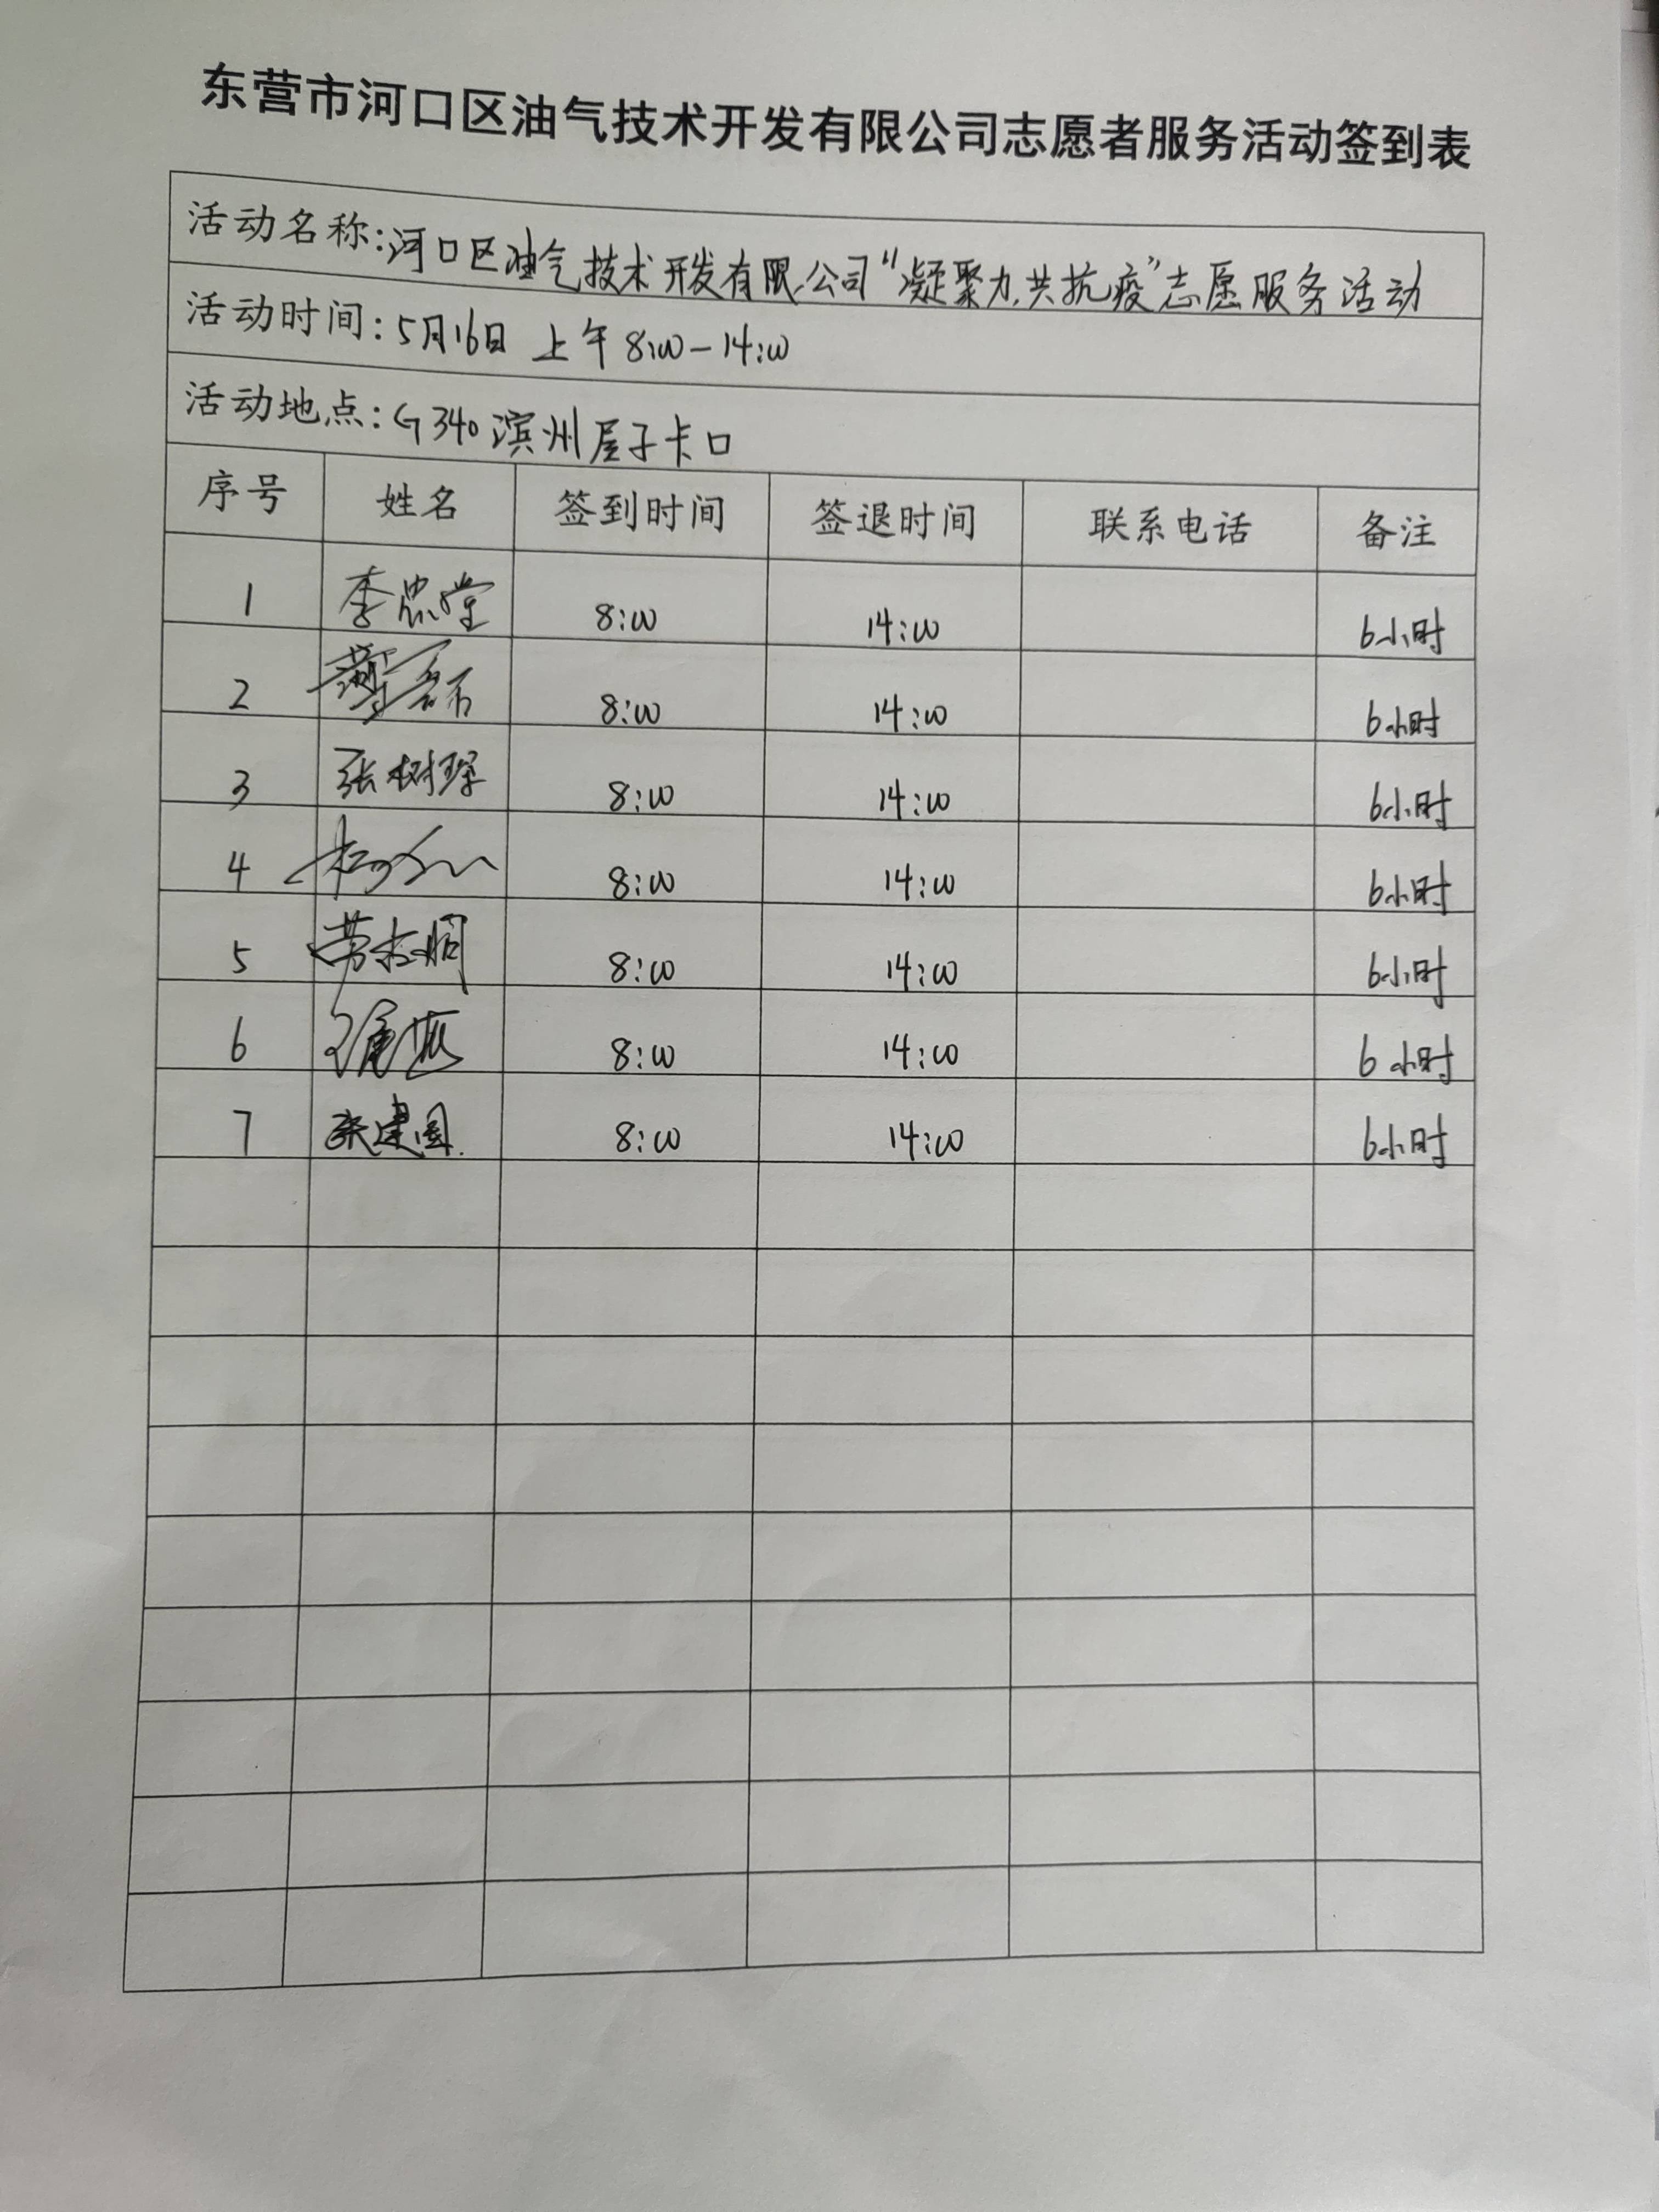 东营市河口区油气技术开发有限公司志愿者服务活动签到表
活动名称:河口区油气技术开发有限公司“凝聚力,共抗疫”志愿服务活动
活动时间:5月16日 上午 8:00-14:00
活动地点:G340滨州屋子卡口
序号 姓名 签到时间 签退时间 联系电话 备注
1 李忠堂 8:00 14:00 6小时
2 8:00 14:00 6小时
3 张树琛 8:00 14:00 6小时
4 8:00 14:00 6小时
5 8:00 14:00 6小时
6 8:00 14:00 6小时
7 张建国 8:00 14:00 6小时